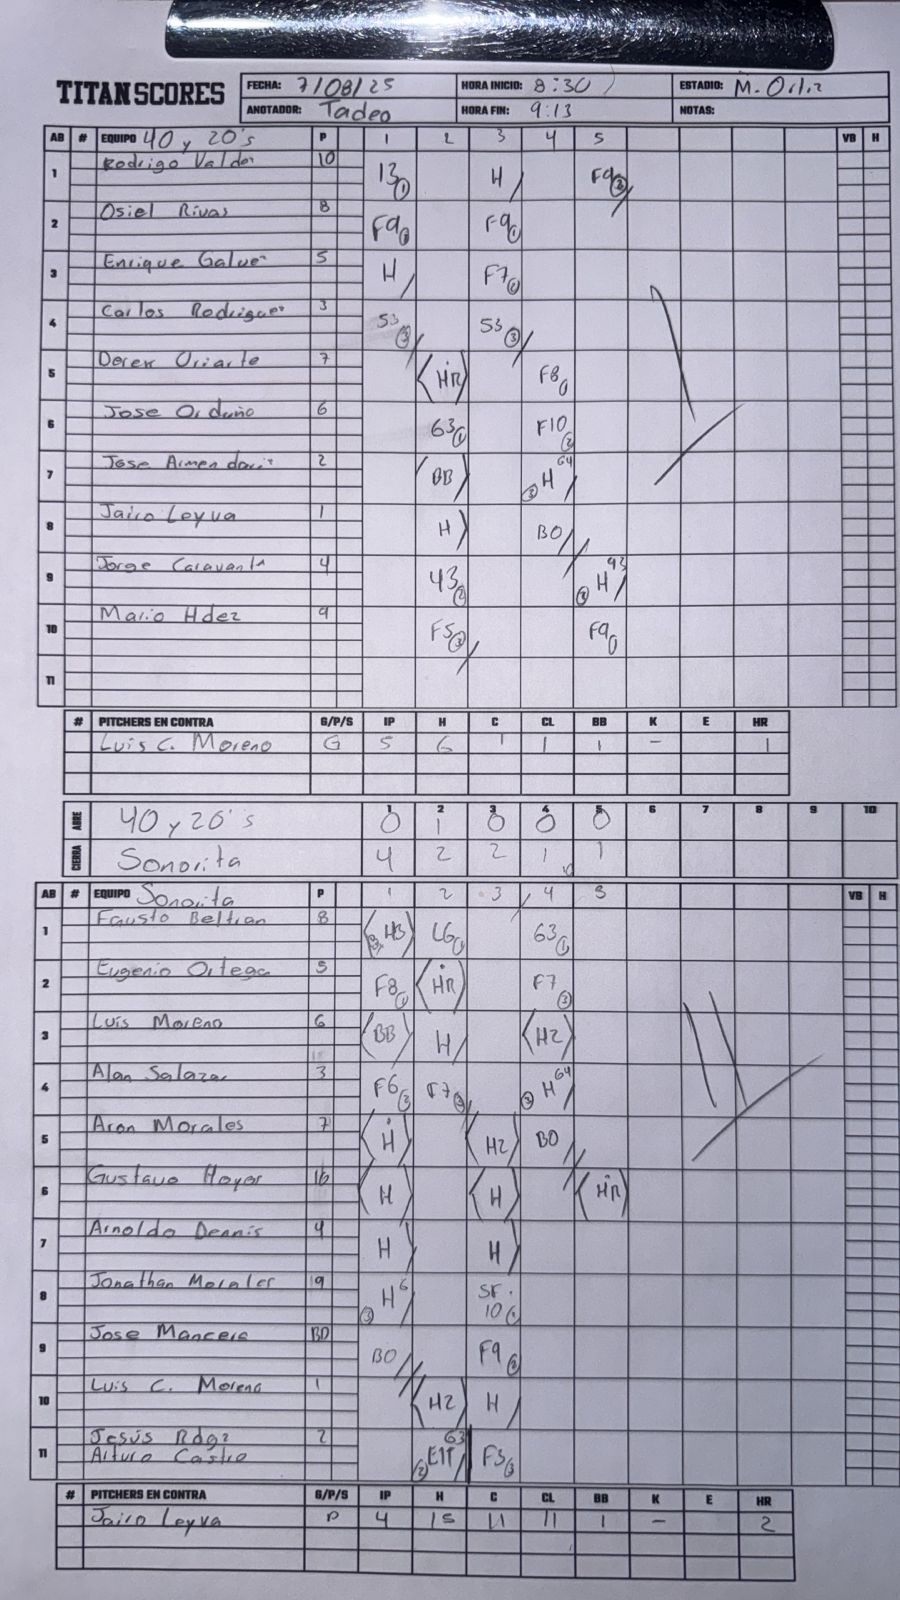 TITAN SCORES
FECHA: 7/08/25 HORA INICIO: 8:30 ESTADIO: M. Ortiz
ANOTADOR: Tadeo HORA FIN: 9:13 NOTAS:
AB # EQUIPO 40 y 20's P 1 2 3 4 5 VB H
1 Rodrigo Valdez 10 13 1 H F9 3
2 Osiel Rivas 8 F9 2 F9 1
3 Enrique Galvez 5 H F7 2
4 Carlos Rodriguez 3 53 3 53 3
5 Derek Uriarte 7 HR F8 1
6 Jose Orduño 6 63 1 F10 2
7 Jose Armendariz 2 BB H 64 3
8 Jairo Leyva 1 H BO
9 Jorge Caravantes 4 43 2 H 93 2
10 Mario Hdez 9 F5 3 F9 1
11
# PITCHERS EN CONTRA G/P/S IP H C CL BB K E HR
Luis C. Moreno G 5 6 1 1 1 – 1
1 2 3 4 5 6 7 8 9 10
ABRE 40 y 20's 0 1 0 0 0
CIERRA Sonorita 4 2 2 1 1
AB # EQUIPO Sonorita P 1 2 3 4 5 VB H
1 Fausto Beltran 8 H3 L6 1 63 1
2 Eugenio Ortega 5 F8 1 HR F7 2
3 Luis Moreno 6 BB H H2
4 Alan Salazar 3 F6 2 F7 3 H 64 3
5 Aron Morales 7 H H2 BO
6 Gustavo Hoyos 10 H H HR
7 Arnoldo Dennis 4 H H
8 Jonathan Morales 9 H 6 3 SF. 10 1
9 Jose Mancera BD BO F9 2
10 Luis C. Moreno 1 H2 H
11 Jesús Rdgz 2 63
Arturo Castro 2 E1T F3 3
# PITCHERS EN CONTRA G/P/S IP H C CL BB K E HR
Jairo Leyva P 4 15 11 11 1 – 2